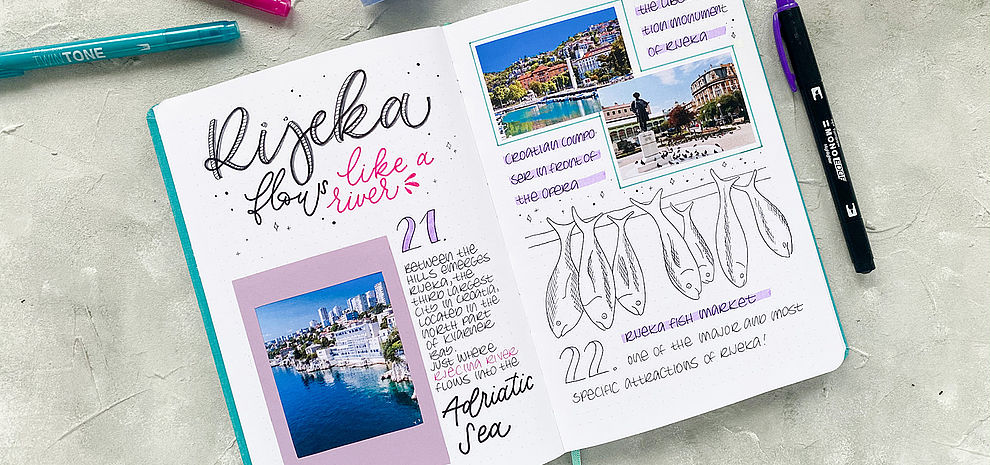 TWINTONE
Rijeka
flows like a
river
21.
BETWEEN THE
HILLS EMERGES
RIJEKA, THE
THIRD LARGEST
CITY IN CROATIA,
LOCATED IN THE
NORTH PART
OF KVARNER
BAY.
JUST WHERE
RJEČINA RIVER
FLOWS INTO THE
Adriatic
Sea
tion monument
of Rijeka
Croatian compo-
ser in front of
the opera
Rijeka fish market
22. one of the major and most
specific attractions of Rijeka!
MONO